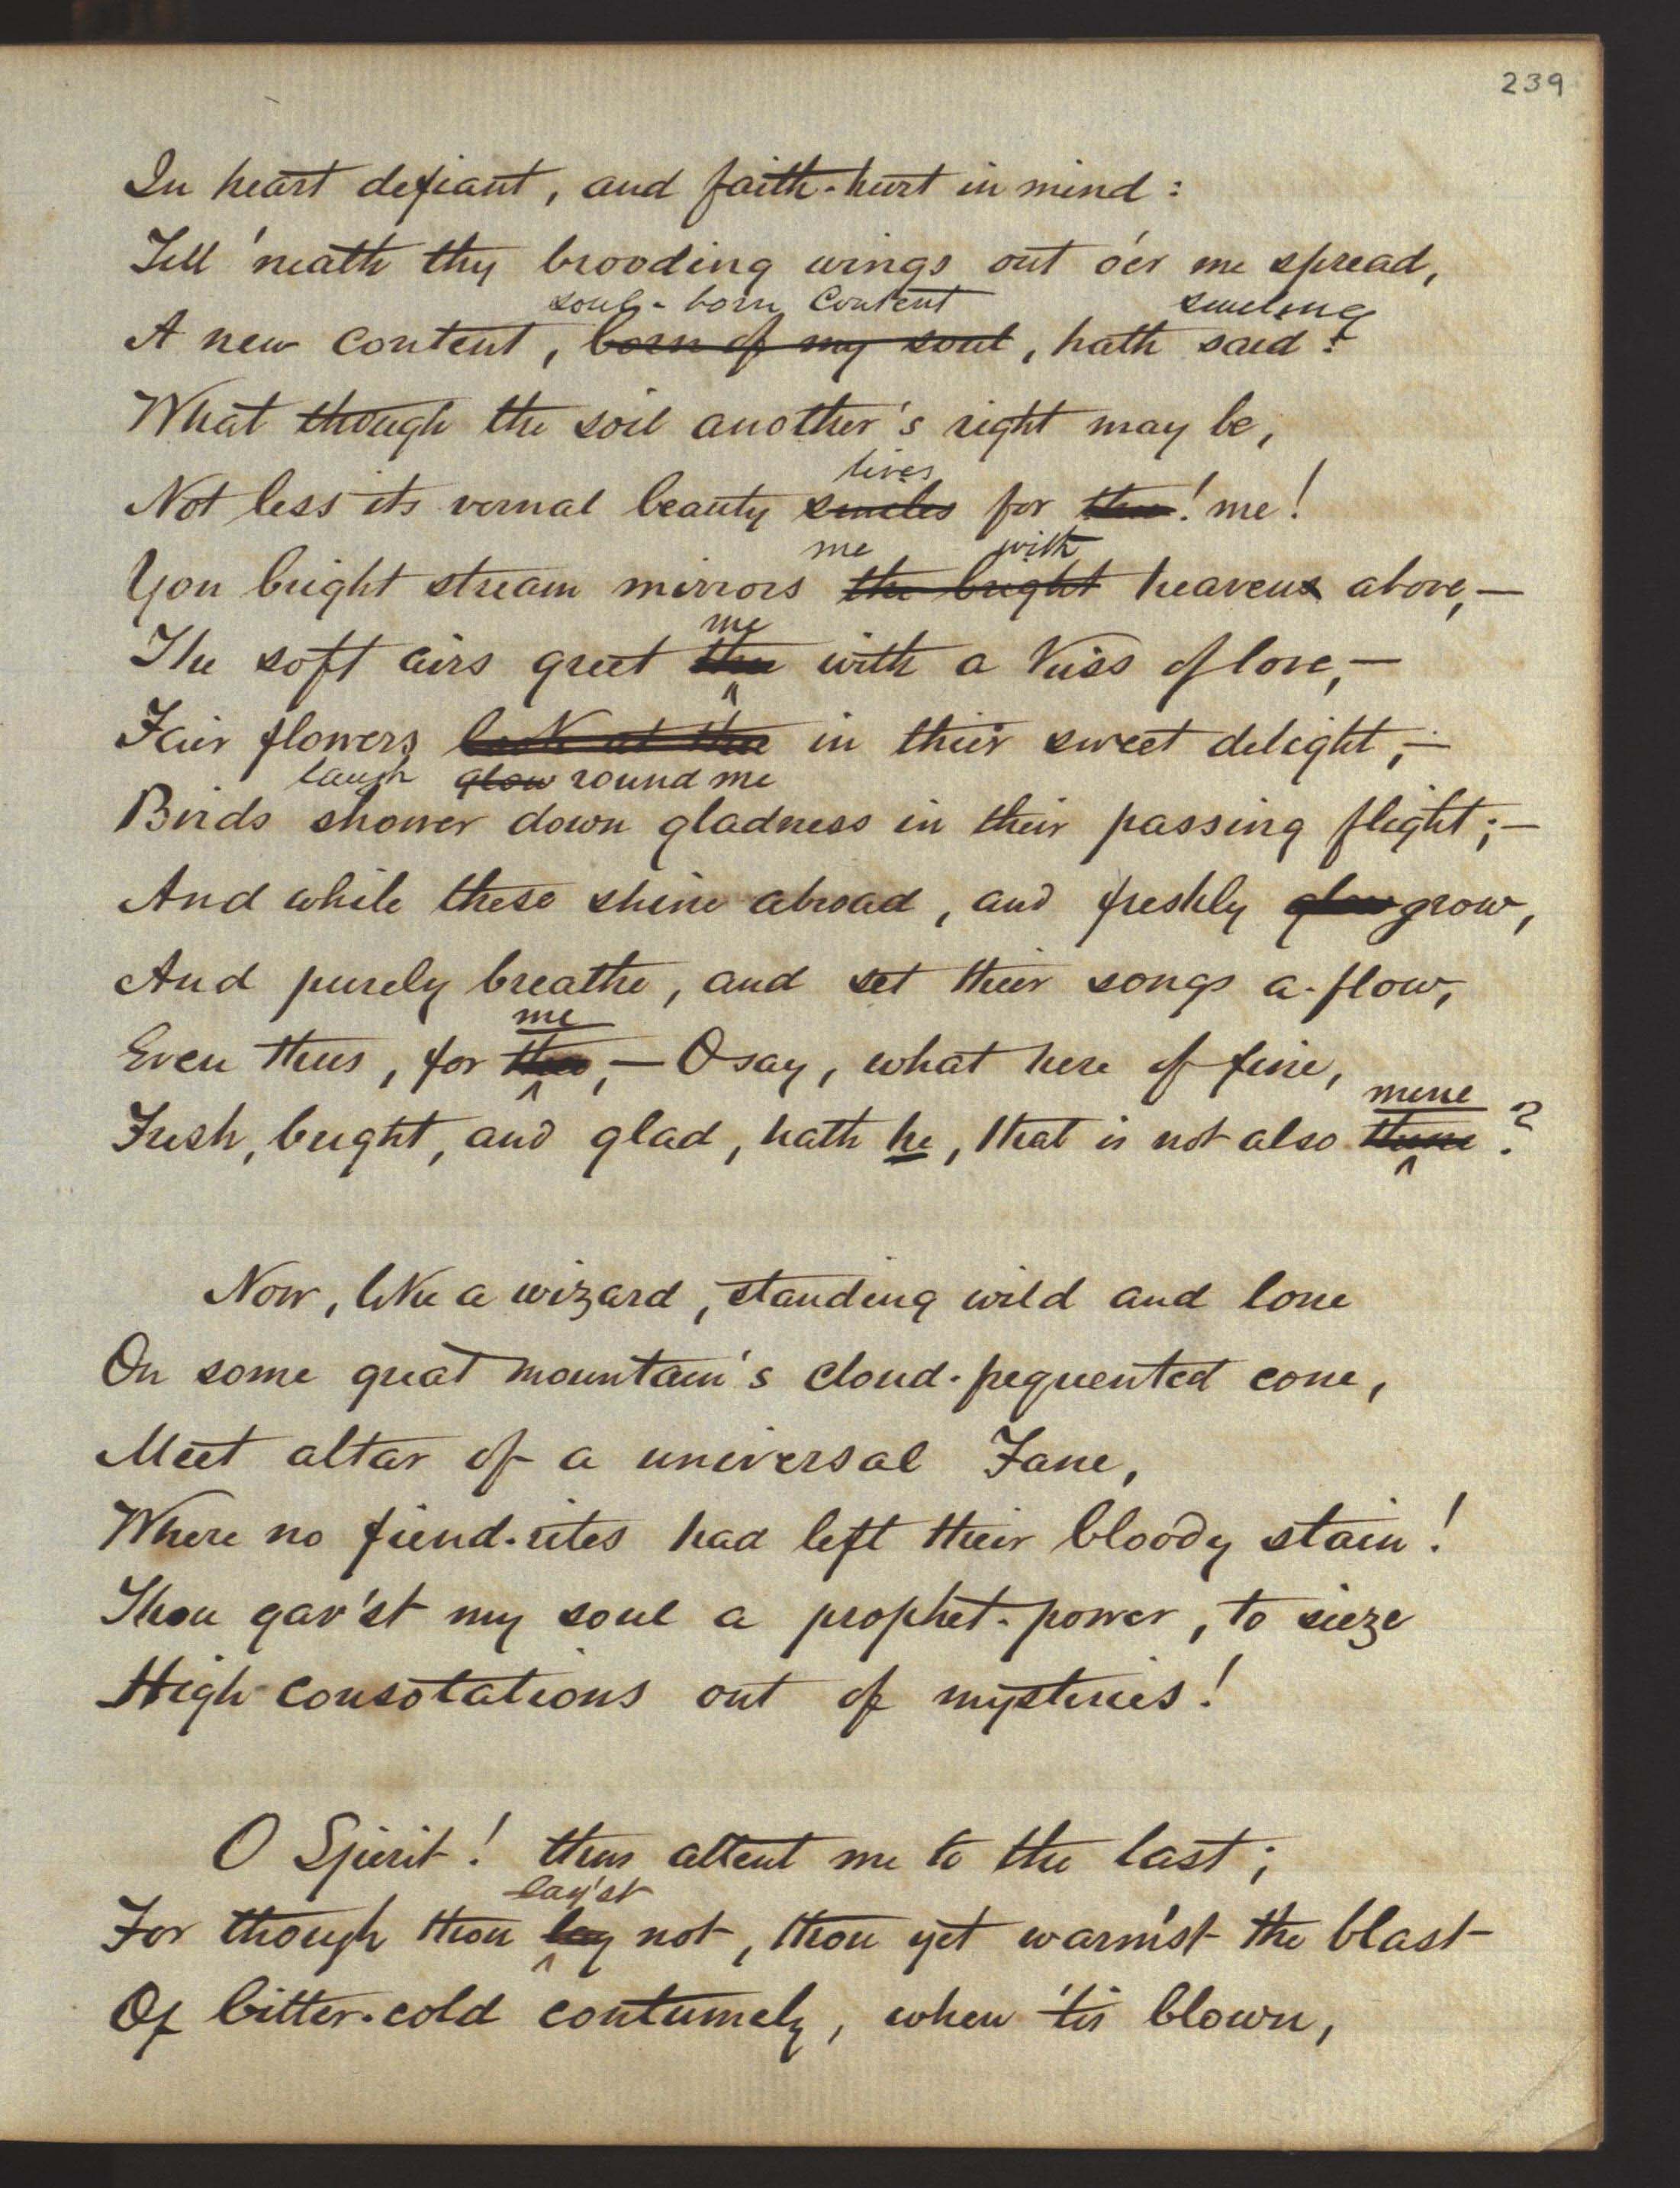 239
In heart defiant, and faith-hurt in mind:
Till 'neath thy brooding wings out o'er me spread,
soul-born Content smiling
A new content, born of my soul, hath said:
What though the soil another's right may be,
lives
Not less its vernal beauty smiles for thee! me!
me with
Yon bright stream mirrors the bright heavens above,—
me
The soft airs greet thee with a kiss of love,—
Fair flowers look at thee in their sweet delight,—
laugh glow round me
Birds shower down gladness in their passing flight;—
And while these shine abroad, and freshly glow grow,
And purely breathe, and set their songs a-flow,
me
Even thus, for thee,— O say, what here of fine,
mine
Fresh, bright, and glad, hath he, that is not also thine?
Now, like a wizard, standing wild and lone
On some great mountain's cloud-frequented cone,
Meet altar of a universal Fane,
Where no fiend-rites had left their bloody stain!
Thou gav'st my soul a prophet-power, to sieze
High consolations out of mysteries!
O Spirit! thus attent me to the last;
lay'st
For though thou lay not, thou yet warm'st the blast
Of bitter-cold contumely, when 'tis blown,